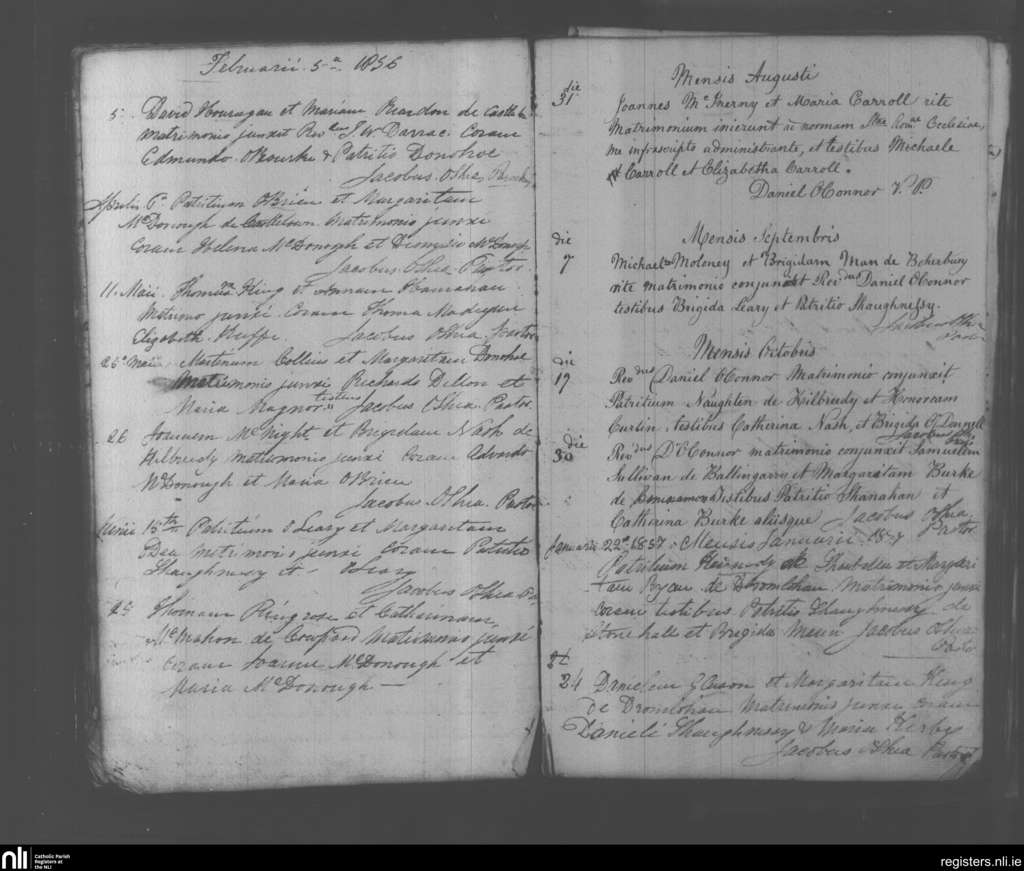 Februarii 5a 1836
5 David Houragan et Mariam Reardon de Castle
matrimonio junxit Rev J. W. Darrac. Coram
Edmundo O'Rourke & Patritio Donohoe
Jacobus OShea
Aprilis Patritium O'Brien et Margaritam
McDonough de matrimonio junxi
coram Helena McDonogh et Dionysio McDonogh
Jacobus OShea Pastor
11 Maii Thomam King et Annam Hanrahan
matrimo junxi coram Thoma Madigan
Elizabeth Jacobus OShea Pastor
25 Maii Martinum Collins et Margaritam Donohoe
Matrimonio junxi Richardo Dillon et
Maria Magnor testibus Jacobus OShea Pastor
26 Joannem McNight et Brigidam Nash de
Kilbreedy matrimonio junxi coram Edwardo
McDonough et Maria O'Brien
Jacobus OShea Pastor
Junii 15th Patritium O'Leary et Margaritam
Shea matrimonio junxi coram Patritio
Shaughnessy et Oleary
Jacobus OShea
25 Thomam Ringrose et Catharinam
McMahon de matrimonio junxi
coram Joanne McDonough et
Maria McDonough
Mensis Augusti
die
31 Joannes McInerny et Maria Carroll rite
Matrimonium inierunt ad normam Ecclesiae,
me infrascripto administrante, et testibus Michaele
Carroll et Elizabetha Carroll.
Daniel O'Connor
Mensis Septembris
die
7 Michaelem Moloney et Brigidam
rite matrimonio conjunxit Revdus Daniel O'Connor
testibus Brigida Leary et Patritio Shaughnessy.
Jacobus OShea
Pastor
Mensis Octobris
die
19 Revdus Daniel O'Connor Matrimonio conjunxit
Patritium Naughten de Kilbreedy et Honoream
Curtin testibus Catherina Nash, et Brigida O'Donnell
Jacobus
die
30 Revdus D O'Connor matrimonio conjunxit Samuelem
Sullivan de Ballingarry et Margaritam Burke
de testibus Patritio Shanahan et
Catherina Burke aliisque Jacobus OShea
Pastor
Januarii 22a 1837 Mensis Januarii 1837
Patritium Kennedy de et Margari
tam Ryan de Dromlohan matrimonio junxi
coram testibus Patritio Shaughnessy de
Stone hall et Brigida Meun Jacobus OShea
Pastor
24
24 Danielem Gleason et Margaritam King
de Dromlohan Matrimonio junxi coram
Danieli Shaughnessy & Maria Kerby
Jacobus OShea Pastor
nli Catholic Parish
Registers at
the NLI
registers.nli.ie